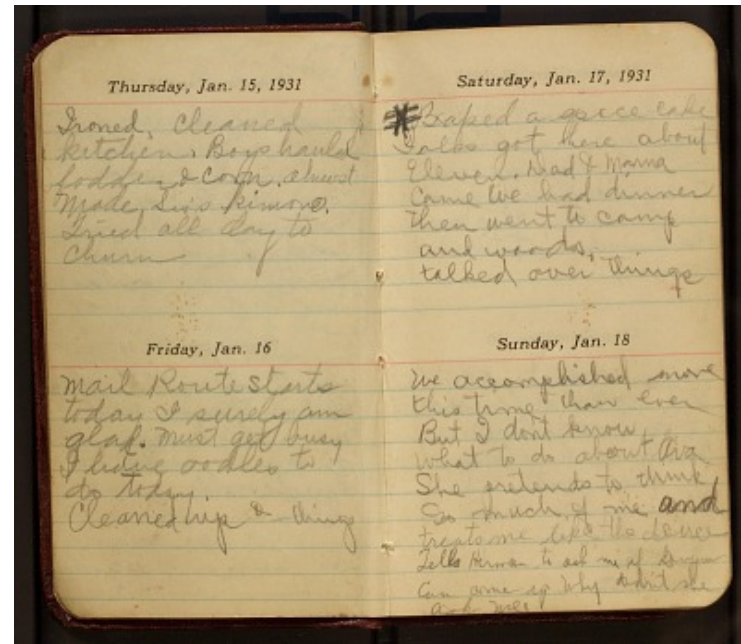 Thursday, Jan. 15, 1931
Ironed, cleaned
kitchen. Boys hauld
fodder & corn. almost
Made Sis's Kimono.
Tried all day to
churn
Friday, Jan. 16
Mail Route starts
today I surely am
glad. Must get busy
I have oodles to
do today.
Cleaned up & things
Saturday, Jan. 17, 1931
Baked a spice cake
Folks got here about
Eleven. Dad & Mama
Came We had dinner
then went to camp
and woods,
talked over things
Sunday, Jan. 18
We accomplished more
this time than ever
But I dont know
what to do about Ova
She pretends to think
So much of me and
treats me like the deuce
Tells Herman to ask me if
Can come up Why dont she